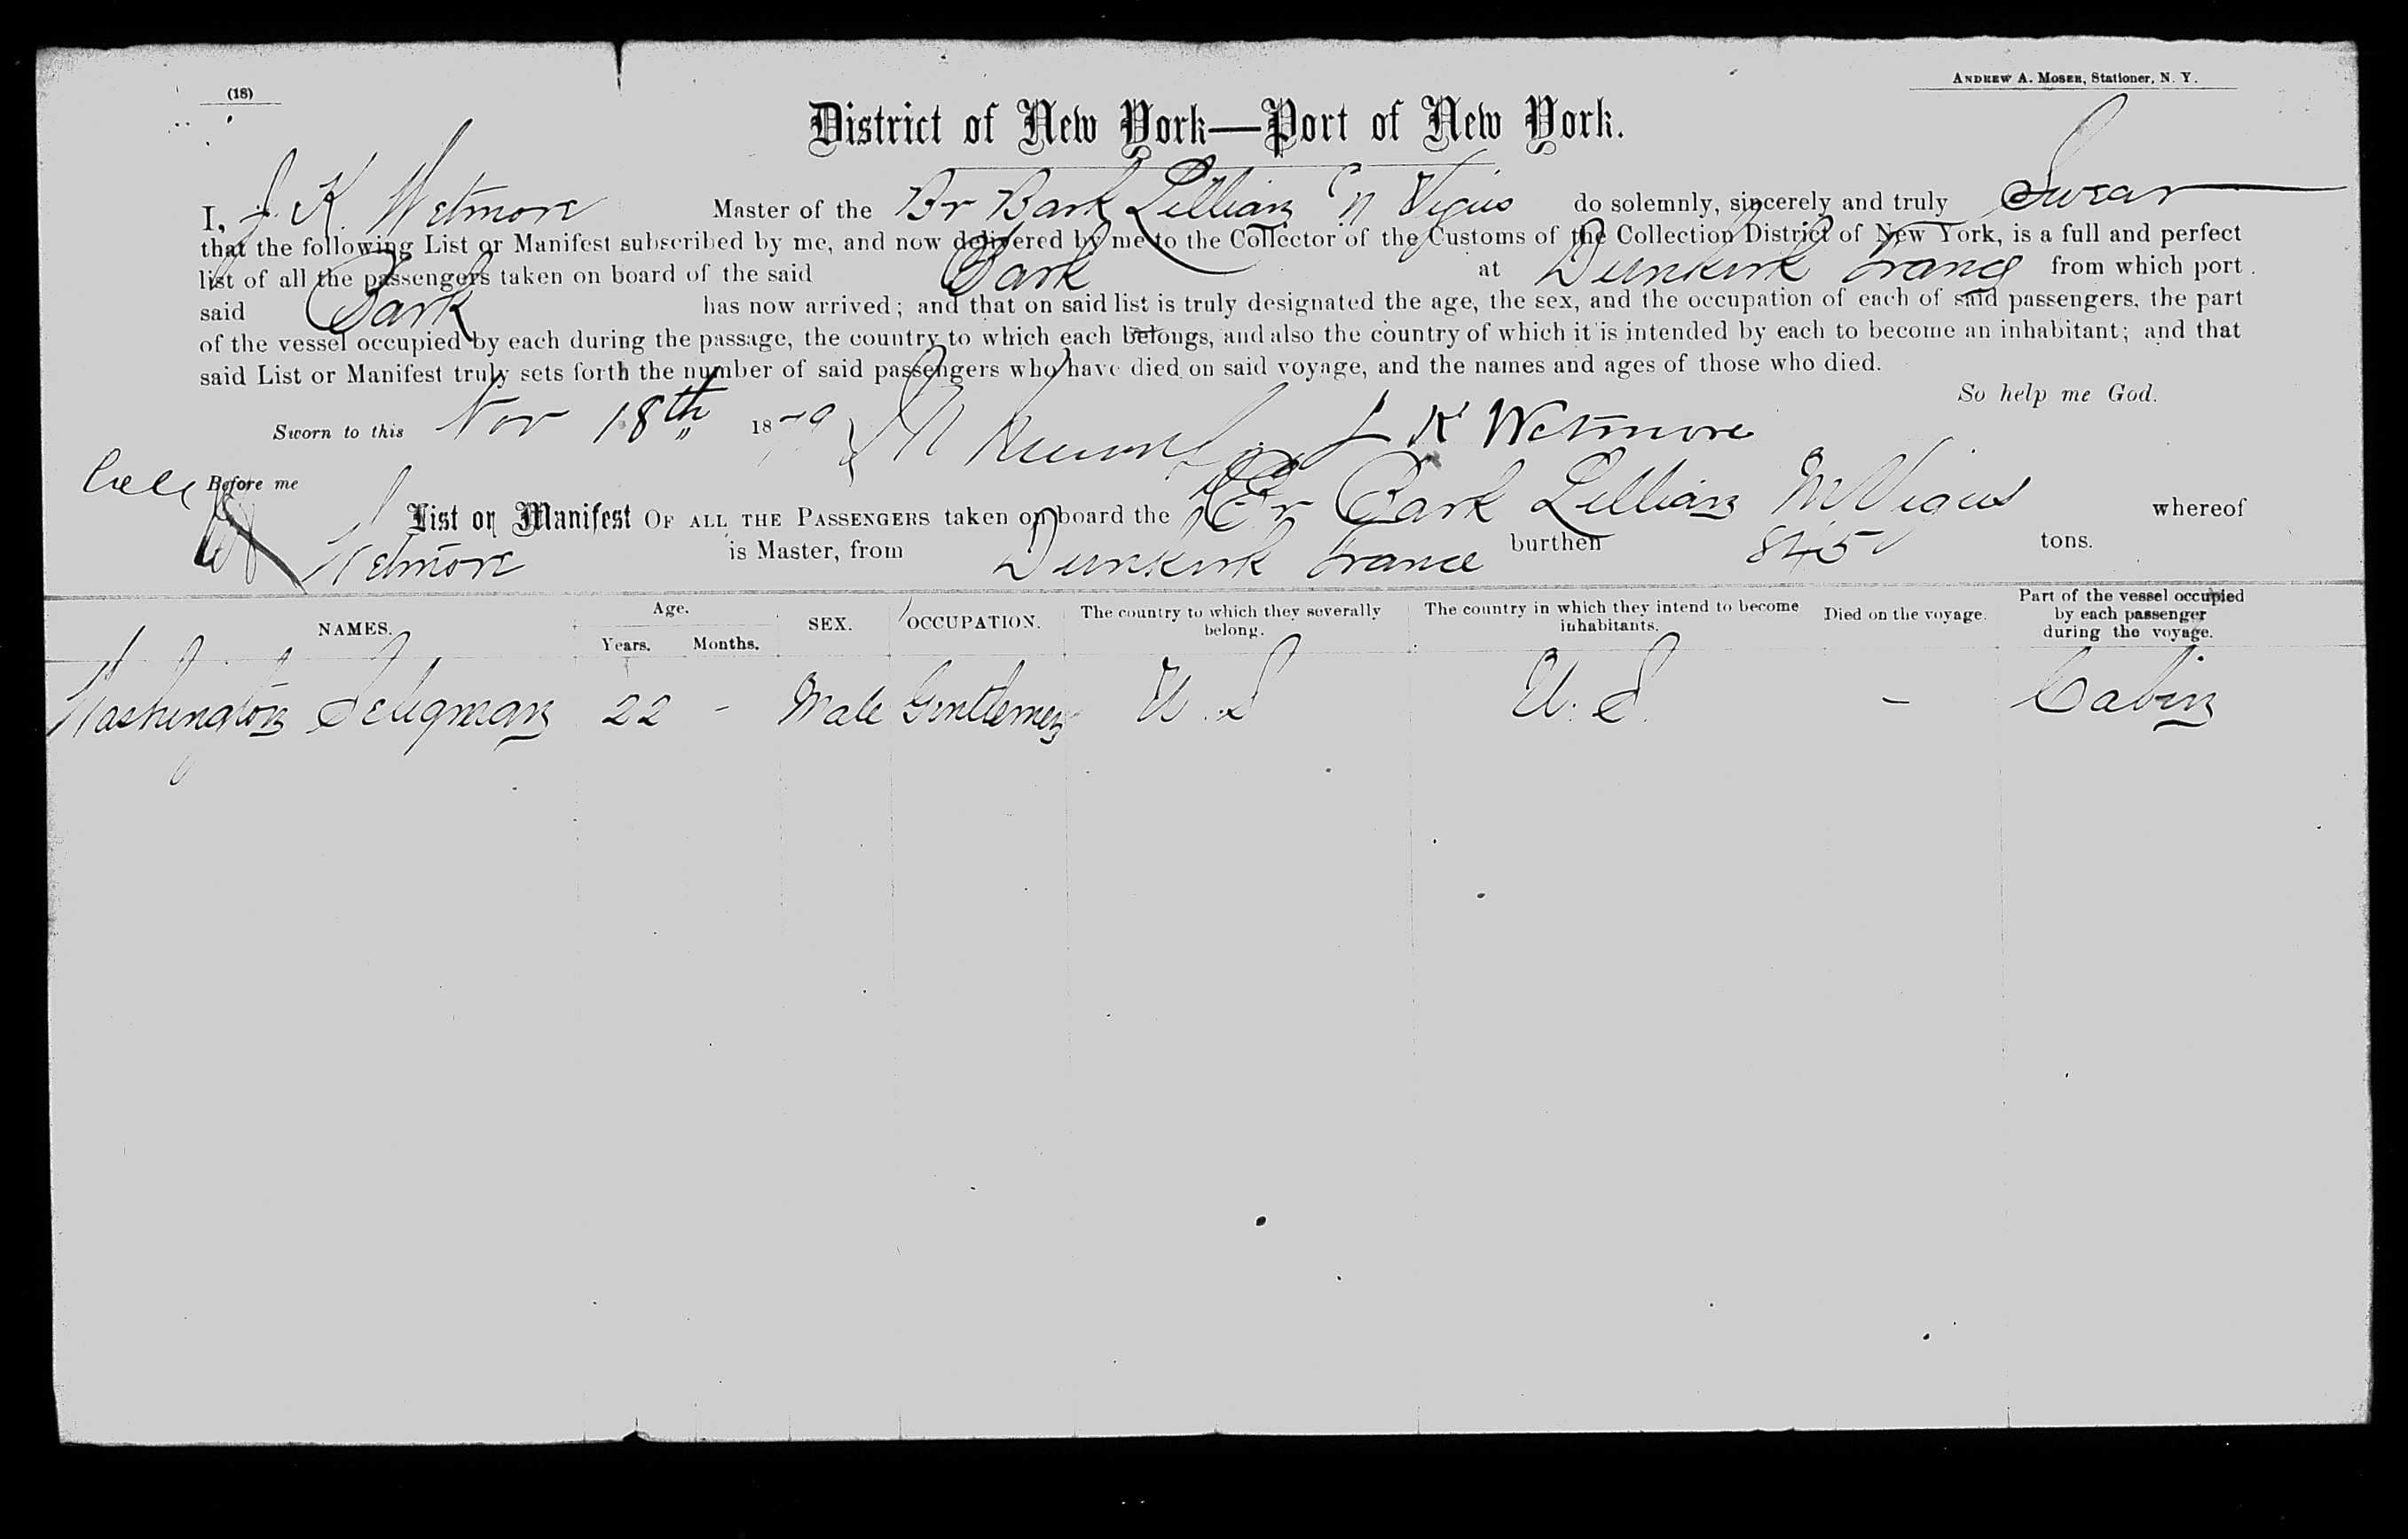 (18)
ANDREW A. MOSER, Stationer, N. Y.
District of New York—Port of New York.
I, J. K. Wetmore Master of the Br Bark Lillian M Vigus do solemnly, sincerely and truly Swear
that the following List or Manifest subscribed by me, and now delivered by me to the Collector of the Customs of the Collection District of New York, is a full and perfect
list of all the passengers taken on board of the said Bark at Dunkirk France from which port
said Bark has now arrived; and that on said list is truly designated the age, the sex, and the occupation of each of said passengers, the part
of the vessel occupied by each during the passage, the country to which each belongs, and also the country of which it is intended by each to become an inhabitant; and that
said List or Manifest truly sets forth the number of said passengers who have died on said voyage, and the names and ages of those who died.
So help me God.
Sworn to this Nov 18th 1879 J K Wetmore
Before me
List or Manifest OF ALL THE PASSENGERS taken on board the Br Bark Lillian M Vigus whereof
Wetmore is Master, from Dunkirk France burthen 845 tons.
NAMES. Age. Years. Months. SEX. OCCUPATION. The country to which they severally belong. The country in which they intend to become inhabitants. Died on the voyage. Part of the vessel occupied by each passenger during the voyage.
Washington Seligman 22 - Male Gentlemen U.S U.S. - Cabin